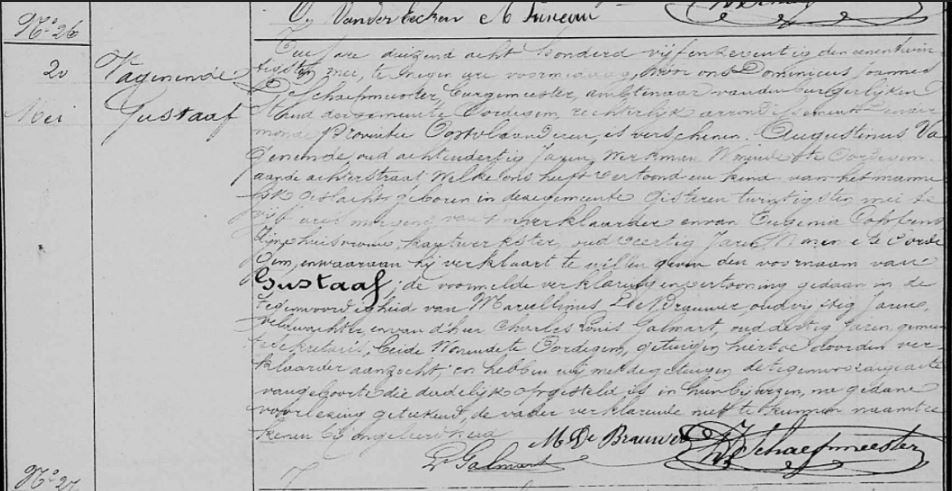 Vander Eecken
N° 26
20
Mei
Vagenende
Gustaaf
Ten jare duizend acht honderd vijfenzeventig den eenentwin
tigsten mei, te negen ure voormiddag, voor ons Dominicus Joannes
De Schaepmeester, burgemeester, ambtenaar van den burgerlijken
Stand der gemeente Oordegem, rechterlijk arrondissement Dender
monde, Provintie Oostvlaanderen, is verschenen Augustinus Va
genende, oud achtendertig Jaren, Werkman, Wonende te Oordegem
aan de achterstraat Welke ons heeft vertoond een kind van het manne
lijk geslacht, geboren in deze gemeente gisteren twintigsten mei te
vijf uren morgens van hem verklaarder en van Eugenia
zijne huisvrouw, kantwerkster, oud veertig Jaren, Wonende te Oorde
gem, en waaraan hij verklaart te willen geven den voornaam van
Gustaaf; de voormelde verklaring en vertooning gedaan in de
tegenwoordigheid van Marcellinus De Brauwer, oud vijftig Jaren,
veldwachter, en van Charles Louis Galmart, oud dertig Jaren, gemeen
te Secretaris, beide Wonende te Oordegem, getuigen hiertoe door den ver
klaarder aanzocht, en hebben wij met de getuigen de tegenwoordige acte
van geboorte die dadelijk opgesteld is in hun bijwezen, na gedane
voorlezing geteekend, de vader verklarende niet te kunnen naamtee
kenen bij ongeleerdheid
M De Brauwer
Ls Galmart
D J Schaepmeester
N° 27